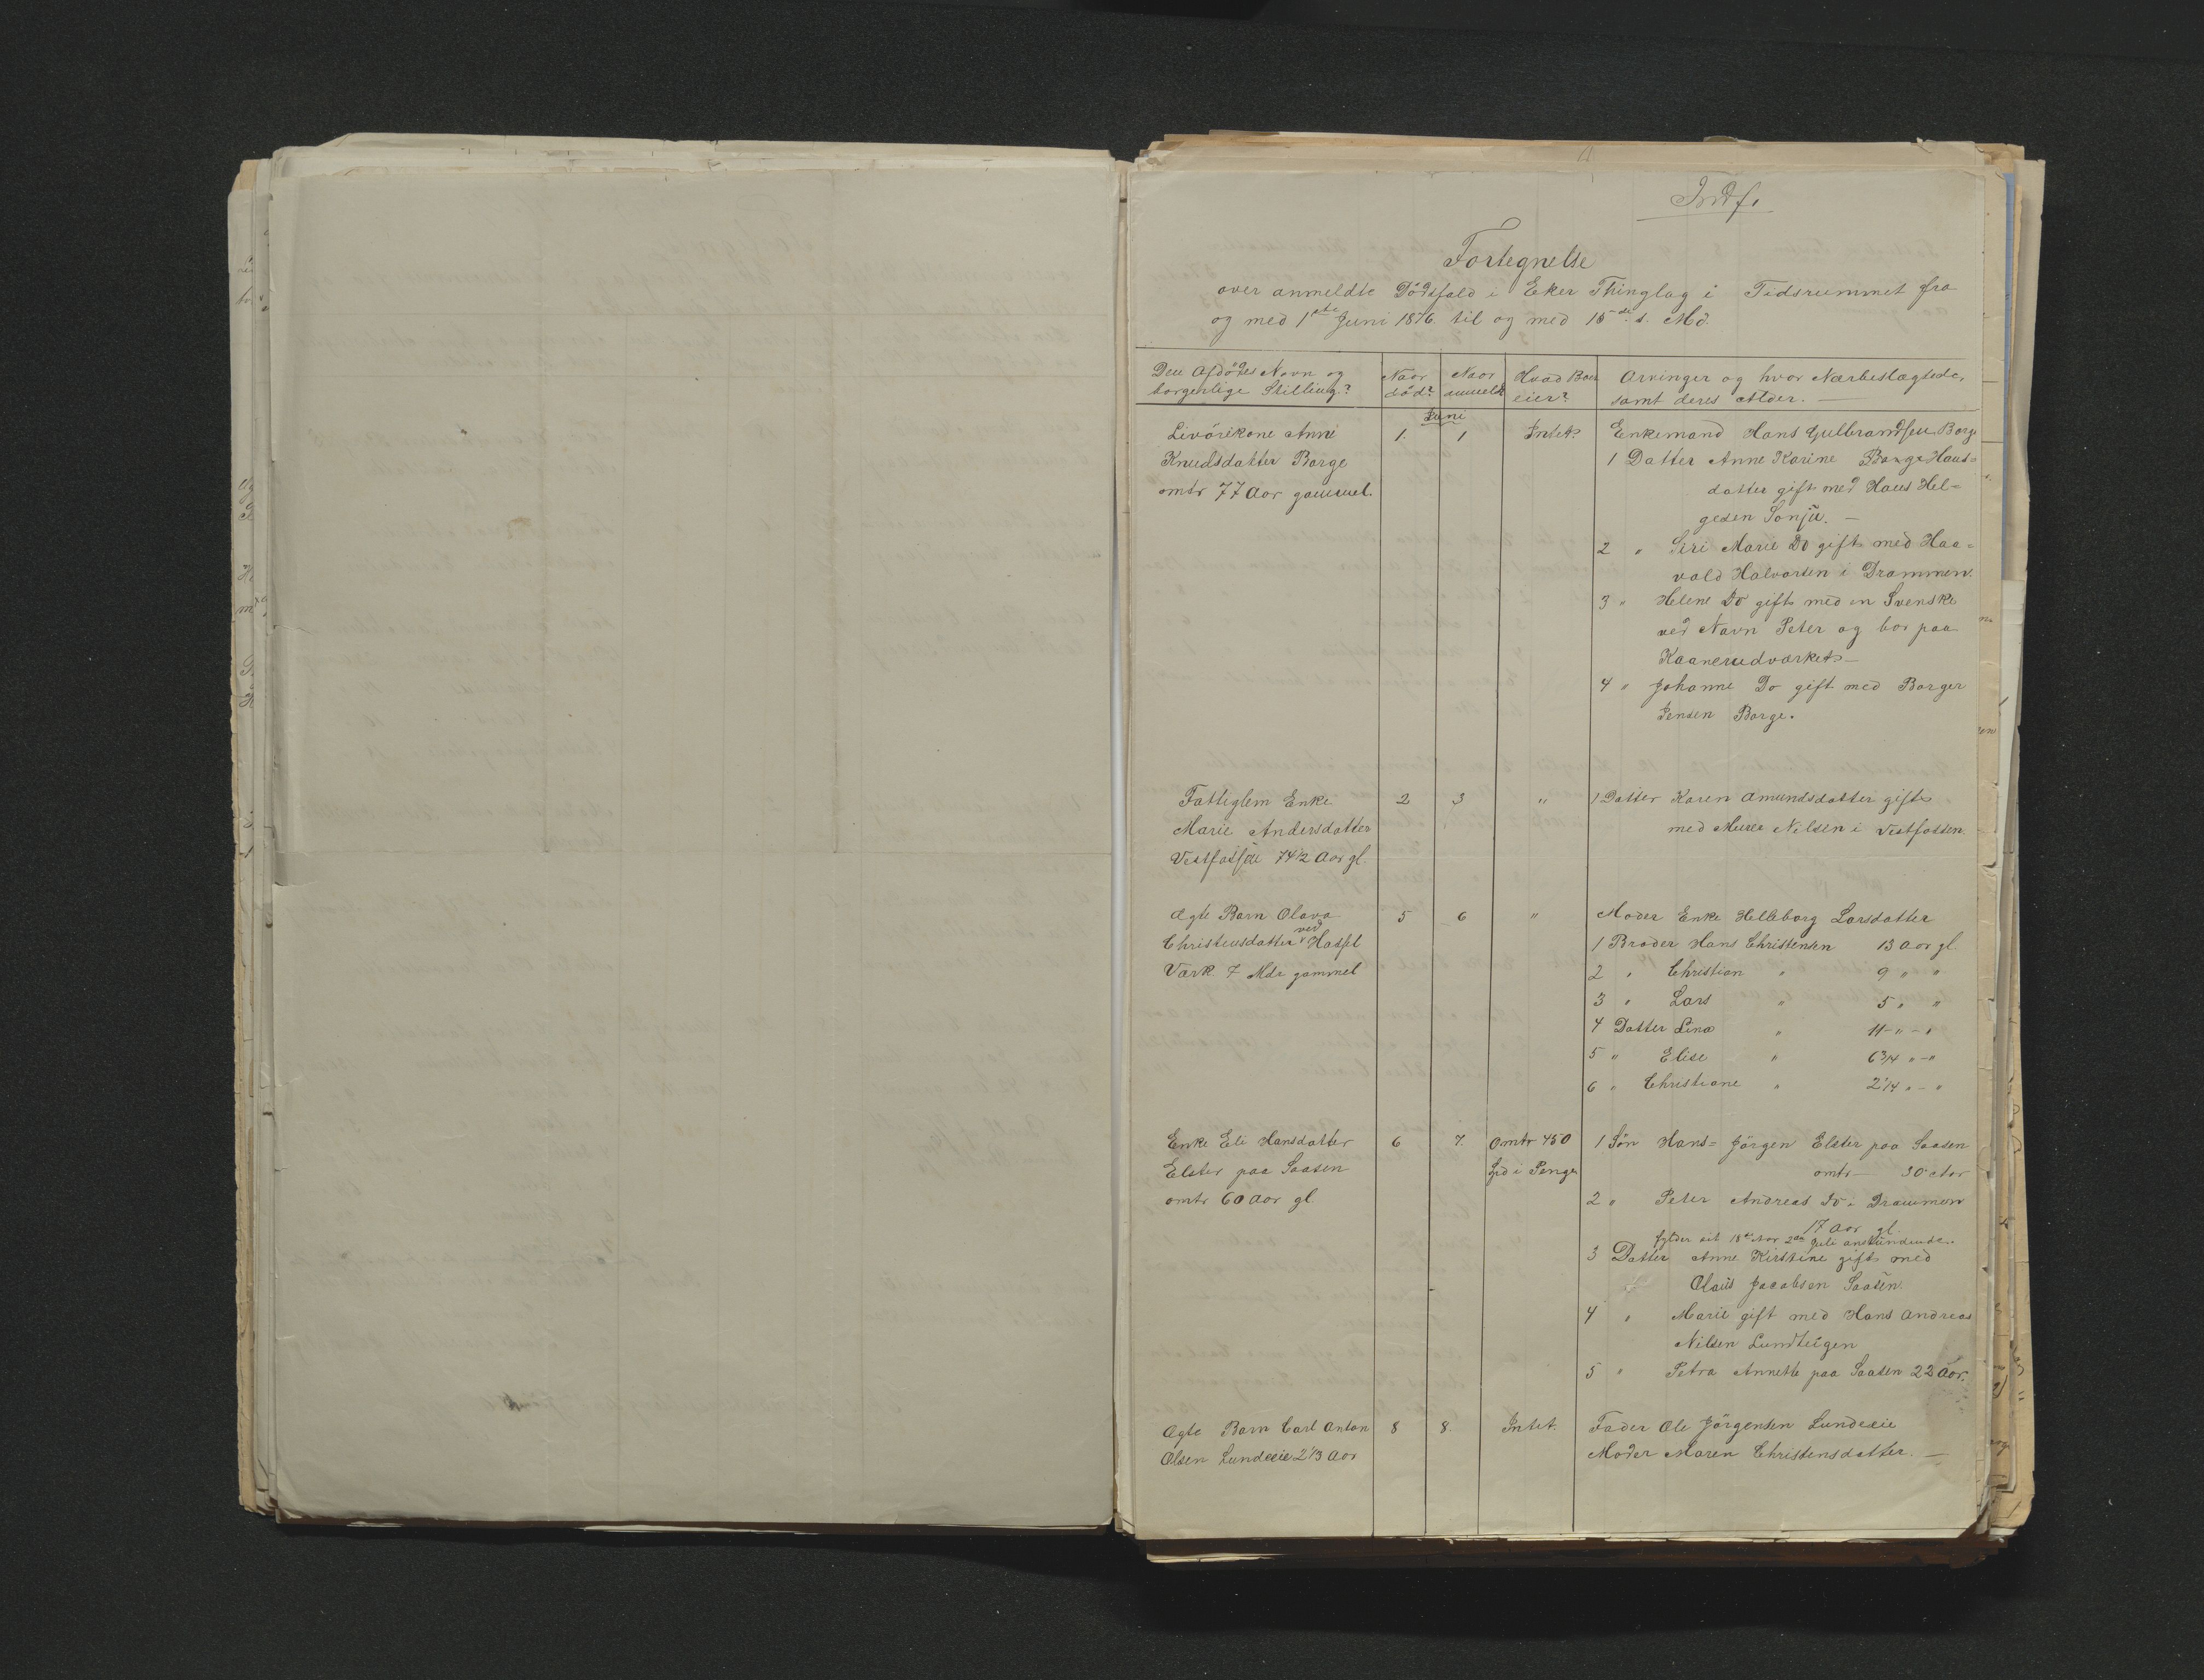 Indf.
Fortegnelse
over anmeldte Dödsfald i Eker Thinglag i Tidsrummet fra
og med 1ste Juni 1876 til og med 15de s. Md.
Den Afdödes Navn og Naar Naar Hvad Boet Arvinger og hvor Nærbeslægtede,
borgerlige Stilling? död? anmeldt eier? samt deres Alder. —
Juni
Livörekone Anne 1. 1 Intet. Enkemand Hans Gulbrandsen Borge
Knudsdatter Borge 1 Datter Anne Karine Borge Hans=
omtr 77 Aar gammel. datter gift med Hans Hel=
gesen Sonju. —
2 " Siri Marie Do gift med Haa=
vald Halvorsen i Drammen.
3 " Helene Do gift med en Svenske
ved Navn Peter og bor paa
Kaanerudværket —
4 " Johanne Do gift med Borger
Jensen Borge.
Fattiglem Enke 2 3 " 1 Datter Karen Amundsdatter gift
Marie Andersdatter med Murer Nilsen i Vestfossen.
Vestfossen 74 1/2 Aar gl.
Ægte Barn Olava 5 6 " Moder Enke Helleborg Larsdatter
Christensdatter ved Hassel 1 Broder Hans Christensen 13 Aar gl.
Værk. 7 Mdr gammel 2 " Christian " 9 " "
3 " Lars " 5 " "
4 Datter Lina " 11 - " - "
5 " Elise " 6 3/4 " - "
6 " Christiane " 2 1/4 " - "
Enke Eli Hansdatter 6 7. Omtr 450 1 Sön Hans= Jörgen Elster paa Saasen
Elster paa Saasen Spd i Penge omtr — 30 Aar
omtr 60 Aar gl. 2 " Peter Andreas Do i Drammen
17 Aar gl.
fylder sit 18de Aar 2den Juli anstundende.
3 Datter Anne Kirstine gift med
Olaus Jacobsen Saasen.
4 " Marie gift med Hans Andreas
Nilsen Lundteigen
5 " Petra Annette paa Saasen 22 Aar.
Ægte Barn Carl Anton 8 8. Intet. Fader Ole Jörgensen Lundeeie
Olsen Lundeeie 2 1/3 Aar Moder Maren Christensdatter. —